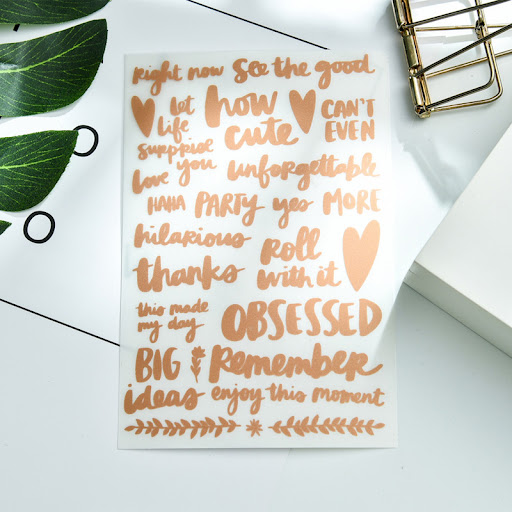 right now see the good
let life surprise you
how cute
CAN'T EVEN
love you
unforgettable
HAHA PARTY yes MORE
hilarious
roll with it
thanks
this made my day
OBSESSED
BIG Remember
ideas enjoy this moment